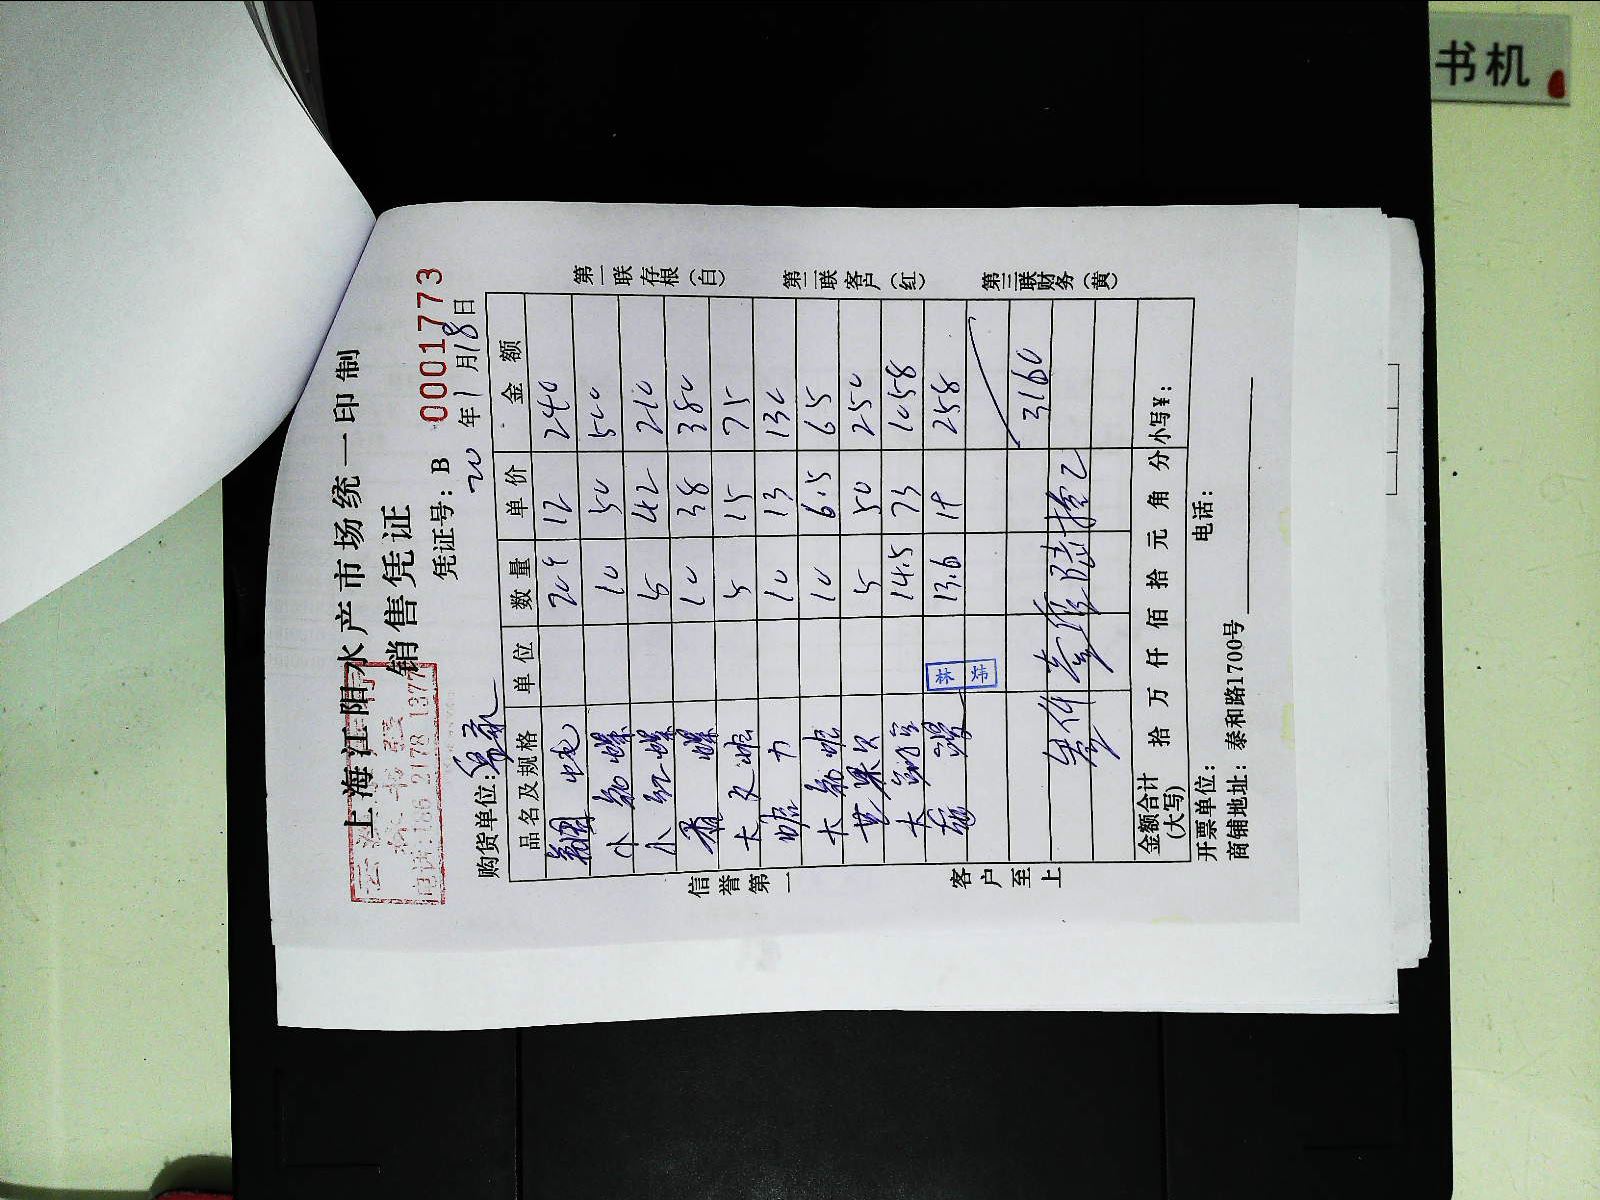 书机
上海江阳水产市场统一印制
销售凭证
凭证号：B 0001773
186 2178 1377
购货单位： 20年1月18日
品名及规格 单位 数量 单价 金额
20 12 240
小 螺 10 50 500
小红螺 5 42 210
香螺 10 38 380
大 5 15 75
10 13 130
大 10 6.5 65
芒果贝 5 50 250
大 14.5 73 1058
13.6 19 258
林炜
3160
金额合计(大写) 拾 万 仟 佰 拾 元 角 分 小写¥：
开票单位： 电话：
商铺地址：泰和路1700号
信誉第一
客户至上
第一联存根（白）
第二联客户（红）
第三联财务（黄）